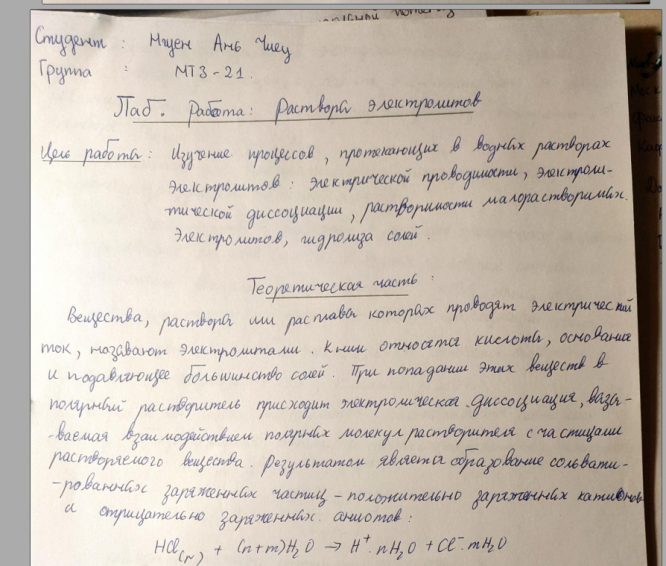 Студент : Нгуен Ань Чиеу
Группа : МТ3-21.
Лаб. Работа: Растворы электролитов
Цель работы: Изучение процессов, протекающих в водных растворах
электролитов: электрической проводимости, электроли-
тической диссоциации, растворимости малорастворимых
электролитов, гидролиза солей.
Теоретическая часть :
Вещества, растворы или расплавы которых проводят электрический
ток, называют электролитами. К ним относятся кислоты, основание
и подавляющее большинство солей. При попадании этих веществ в
полярный растворитель присходит электролическая диссоциация, вызы-
-ваемая взаимодействием полярных молекул растворителя с частицами
растворяемого вещества. Результатом является образование сольвати-
-рованных заряженных частиц - положительно заряженных катионов
и отрицательно заряженных аниотов:
HCl(г) + (n+m)H₂O → H⁺·nH₂O + Cl⁻·mH₂O